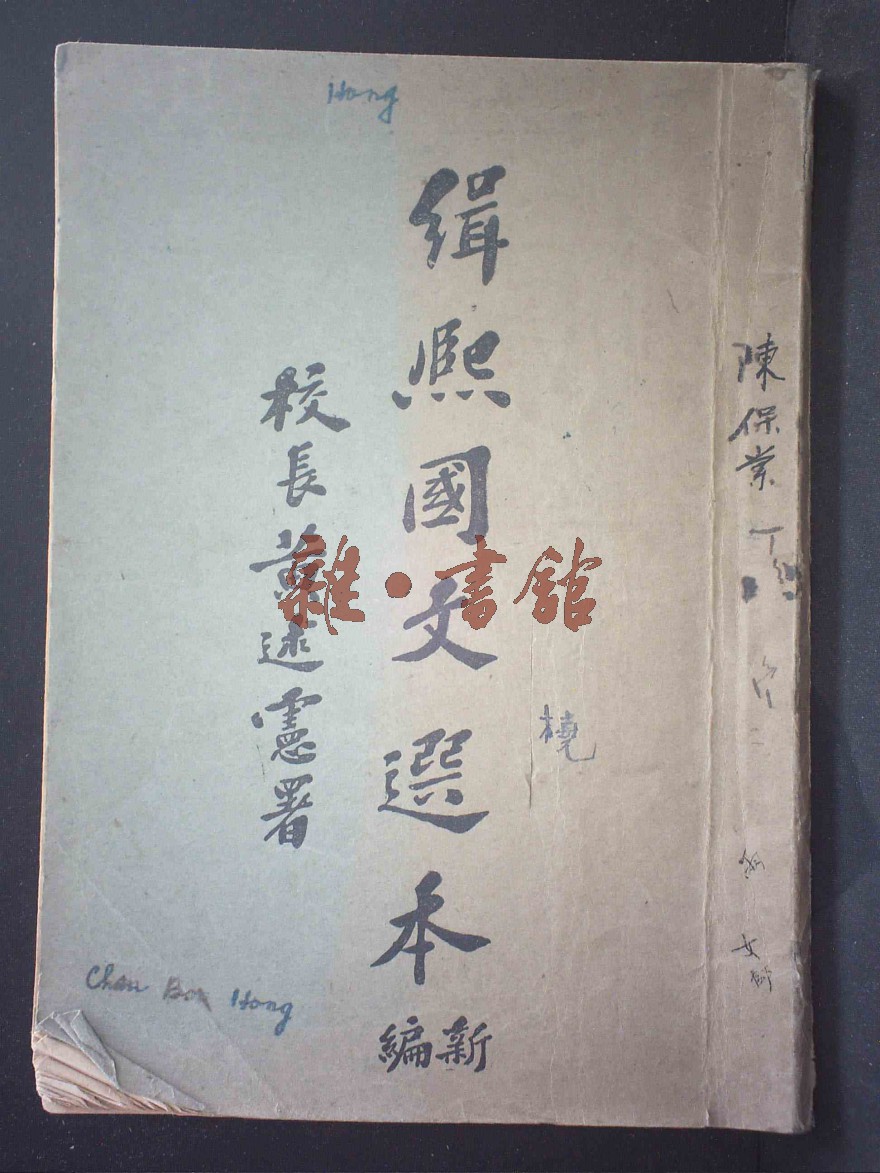 Hong
緝熙國文選本
新編
校長黃述憲署
雜·書館
陳保業
Chan Bon Hong